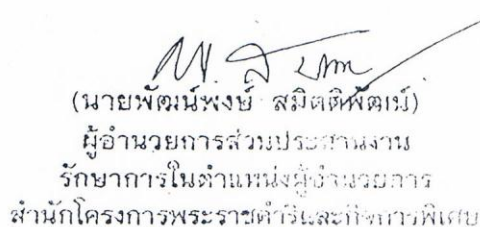 (นายพัฒน์พงษ์ สมิตติพัฒน์)
ผู้อำนวยการส่วนประสานงาน
รักษาการในตำแหน่งผู้อำนวยการ
สำนักโครงการพระราชดำริและกิจการพิเศษ